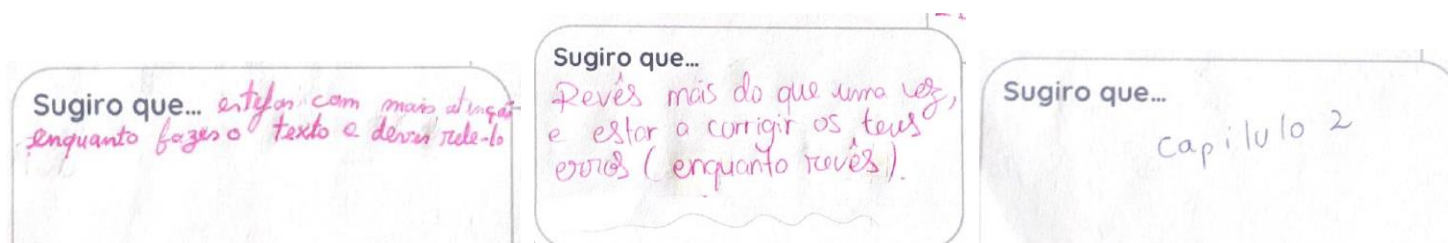 Sugiro que... estejas com mais atenção
enquanto fazes o texto e deves relê-lo
Sugiro que...
Revês mais do que uma vez,
e estar a corrigir os teus
erros (enquanto revês).
Sugiro que...
capitulo 2